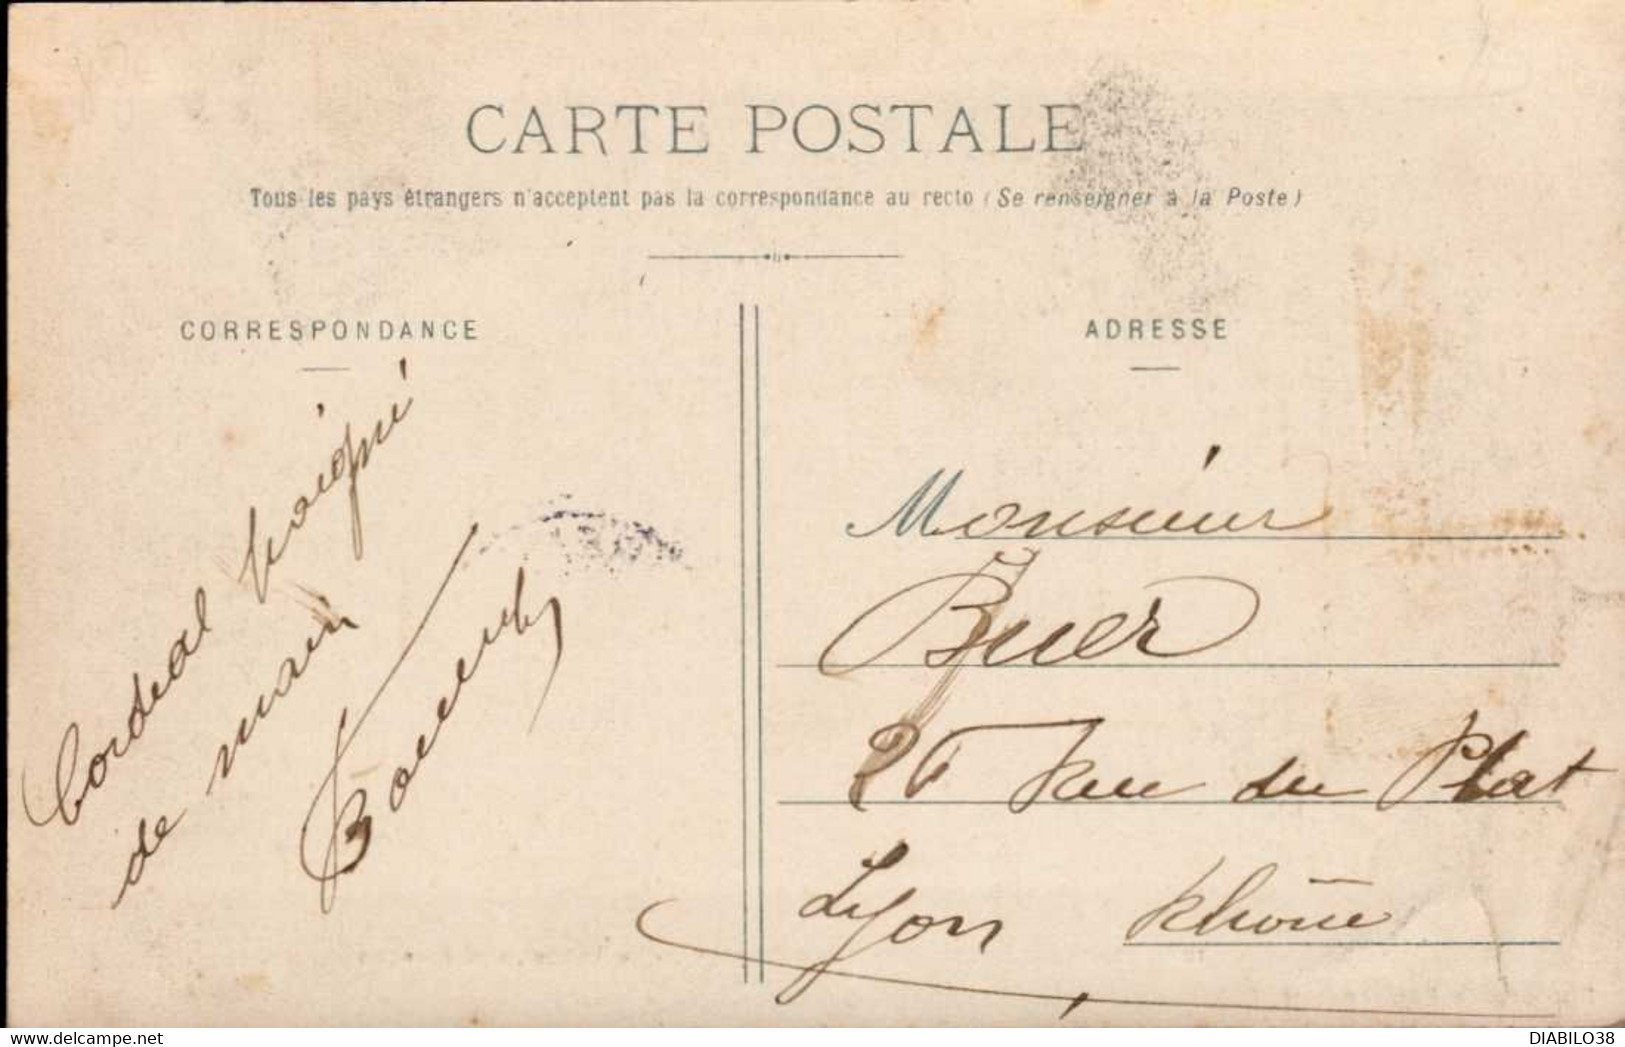 CARTE POSTALE
Tous les pays étrangers n'acceptent pas la correspondance au recto (Se renseigner à la Poste)
CORRESPONDANCE
Cordial
de main
ADRESSE
Monsieur
Buer
rue du Plat
Lyon Rhône
DIABILO38